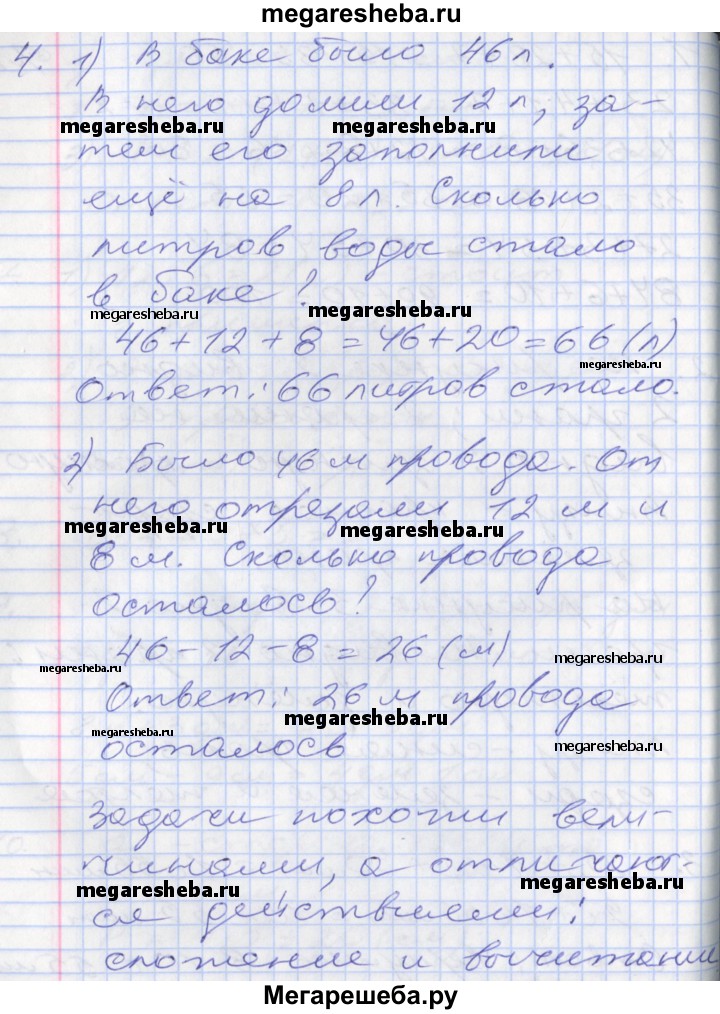 megaresheba.ru
4. 1) В баке было 46 л.
В него долили 12 л, за-
megaresheba.ru megaresheba.ru
тем его заполнили
ещё на 8 л. Сколько
литров воды стало
в баке?
megaresheba.ru megaresheba.ru
46 + 12 + 8 = 46 + 20 = 66 (л)
megaresheba.ru
Ответ: 66 литров стало.
2) Было 46 м провода. От
него отрезали 12 м и
megaresheba.ru megaresheba.ru
8 м. Сколько провода
осталось?
46 - 12 - 8 = 26 (м)
megaresheba.ru megaresheba.ru
Ответ: 26 м провода
megaresheba.ru megaresheba.ru
осталось megaresheba.ru
Задачи похожи вели-
чинами, а отличают-
megaresheba.ru megaresheba.ru
ся действиями:
сложение и вычитание
Мегарешеба.ру